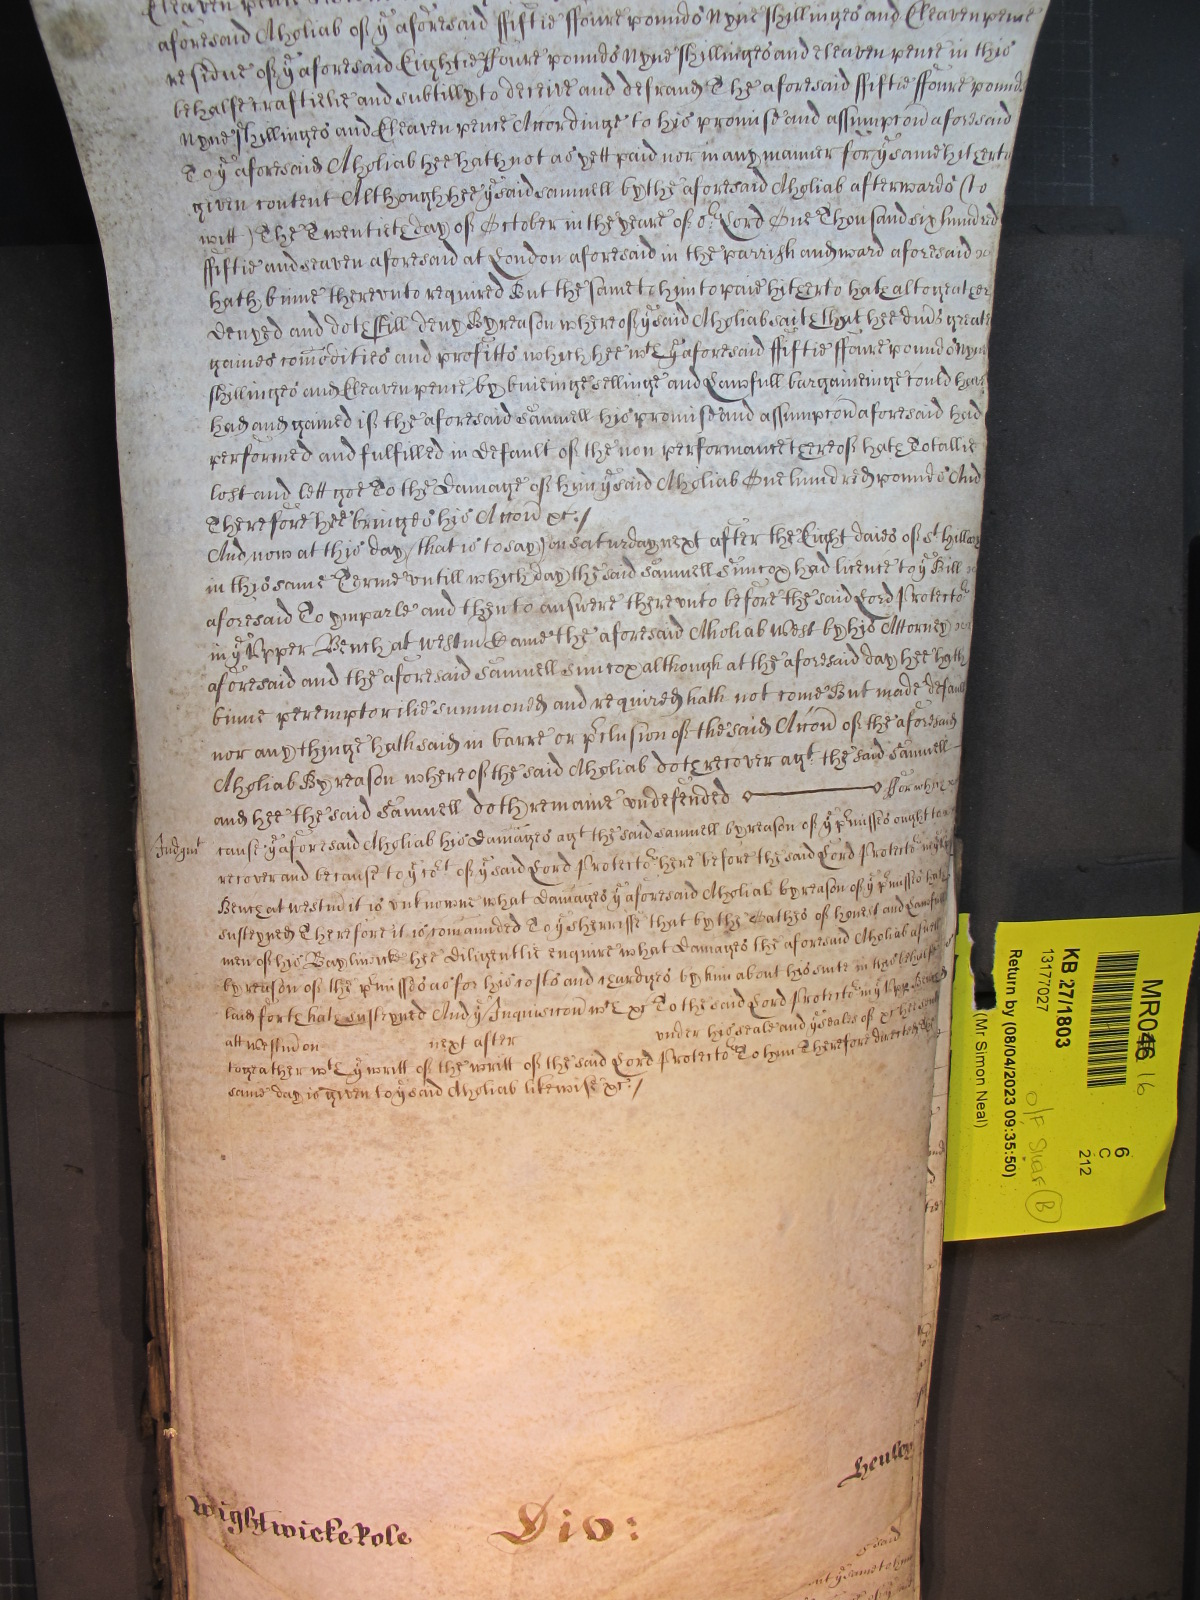 Eleaven pence
aforesaid Aholiab of yͤ aforesaid ffiftie ffoure pounds Nyne shillinges and Eleaven pence
residue of yͤ aforesaid Eightie ffoure pounds Nyne shillinges and eleaven pence in this
behalfe craftielie and subtilly to deceive and defraud The aforesaid ffiftie ffoure pounds
Nyne shillinges and Eleaven pence Accordinge to his promise and assumpcon aforesaid
To yͤ aforesaid Aholiab hee hath not as yett paid nor in any manner for yͤ same hitherto
given content Although hee yͤ said Samuell by the aforesaid Aholiab afterwards (to
witt) The Twentieth day of October in the yeare of oʳ Lord One Thousand six hundred
ffiftie and seaven aforesaid at London aforesaid in the parrish and ward aforesaid
hath binne thereunto required But the same to him to paie hitherto hath altogeather
denyed and doth still deny By reason whereof yͤ said Aholiab saith That hee divers greate
gaines comodities and profitts which hee wᵗʰ yͤ aforesaid ffiftie ffoure pounds Nyne
shillinges and Eleaven pence by buieinge sellinge and Lawfull bargaineinge could have
had and gained if the aforesaid Samuell his promise and assumpcon aforesaid had
performed and fulfilled in default of the non performance thereof hath Totallie
lost and lett goe To the Damage of him yͤ said Aholiab One hundred pounds And
Therefore hee bringes his Accon &c:/
And now at this day (that is to say) on Saturday next after the Eight daies of Sᵗ Hillary
in this same Terme untill which day the said Samuell Simcox had licence to yͤ Bill
aforesaid To imparle and then to answere thereunto before the said Lord Protectoʳ
in yͤ Upper Bench at Westm Came the aforesaid Aholiab West by his Attorney
aforesaid and the aforesaid Samuell Simcox although at the aforesaid day hee hath
binne peremptorilie summoned and required hath not come But made default
nor any thinge hath said in barre or pclusion of the said Accon of the aforesaid
Aholiab By reason whereof the said Aholiab doth recover agᵗ the said Samuell
and hee the said Samuell doth remaine undefended ffor which
Judgmᵗ
cause yͤ aforesaid Aholiab his Damages agᵗ the said Samuell by reason of yͤ pmisses ought to
recover and because to yͤ coʳᵗ of yͤ said Lord Protectoʳ here before the said Lord Protectoʳ in yͤ
Bench at Westm it is unknowne what Damages yͤ aforesaid Aholiab by reason of yͤ pmisses hath
susteyned Therefore it is comaunded To yͤ Sherriffe that by the Oathes of honest and Lawfull
men of his Bayliwicke hee Diligentlie enquire what Damages the aforesaid Aholiab aswell
by reason of the pmisses as for his costs and chardges by him about his suite in this behalfe
laid forth hath susteyned And yͤ Inquisicon wᵗʰ &c To the said Lord Protectoʳ in yͤ Uppʳ Bench
att Westm on next after under his seale and yͤ seales of &c hee send
togeather wᵗʰ yͤ writt of the writt of the said Lord Protectoʳ To him Therefore directed the
same day is given to yͤ said Aholiab likewise &c:/
Henley
Wightwicke Pole Div:
MR046
16
KB 27/1803
13177027
Return by (08/04/2023 09:35:50)
(Mr Simon Neal)
6
C
212
O/F
B
said